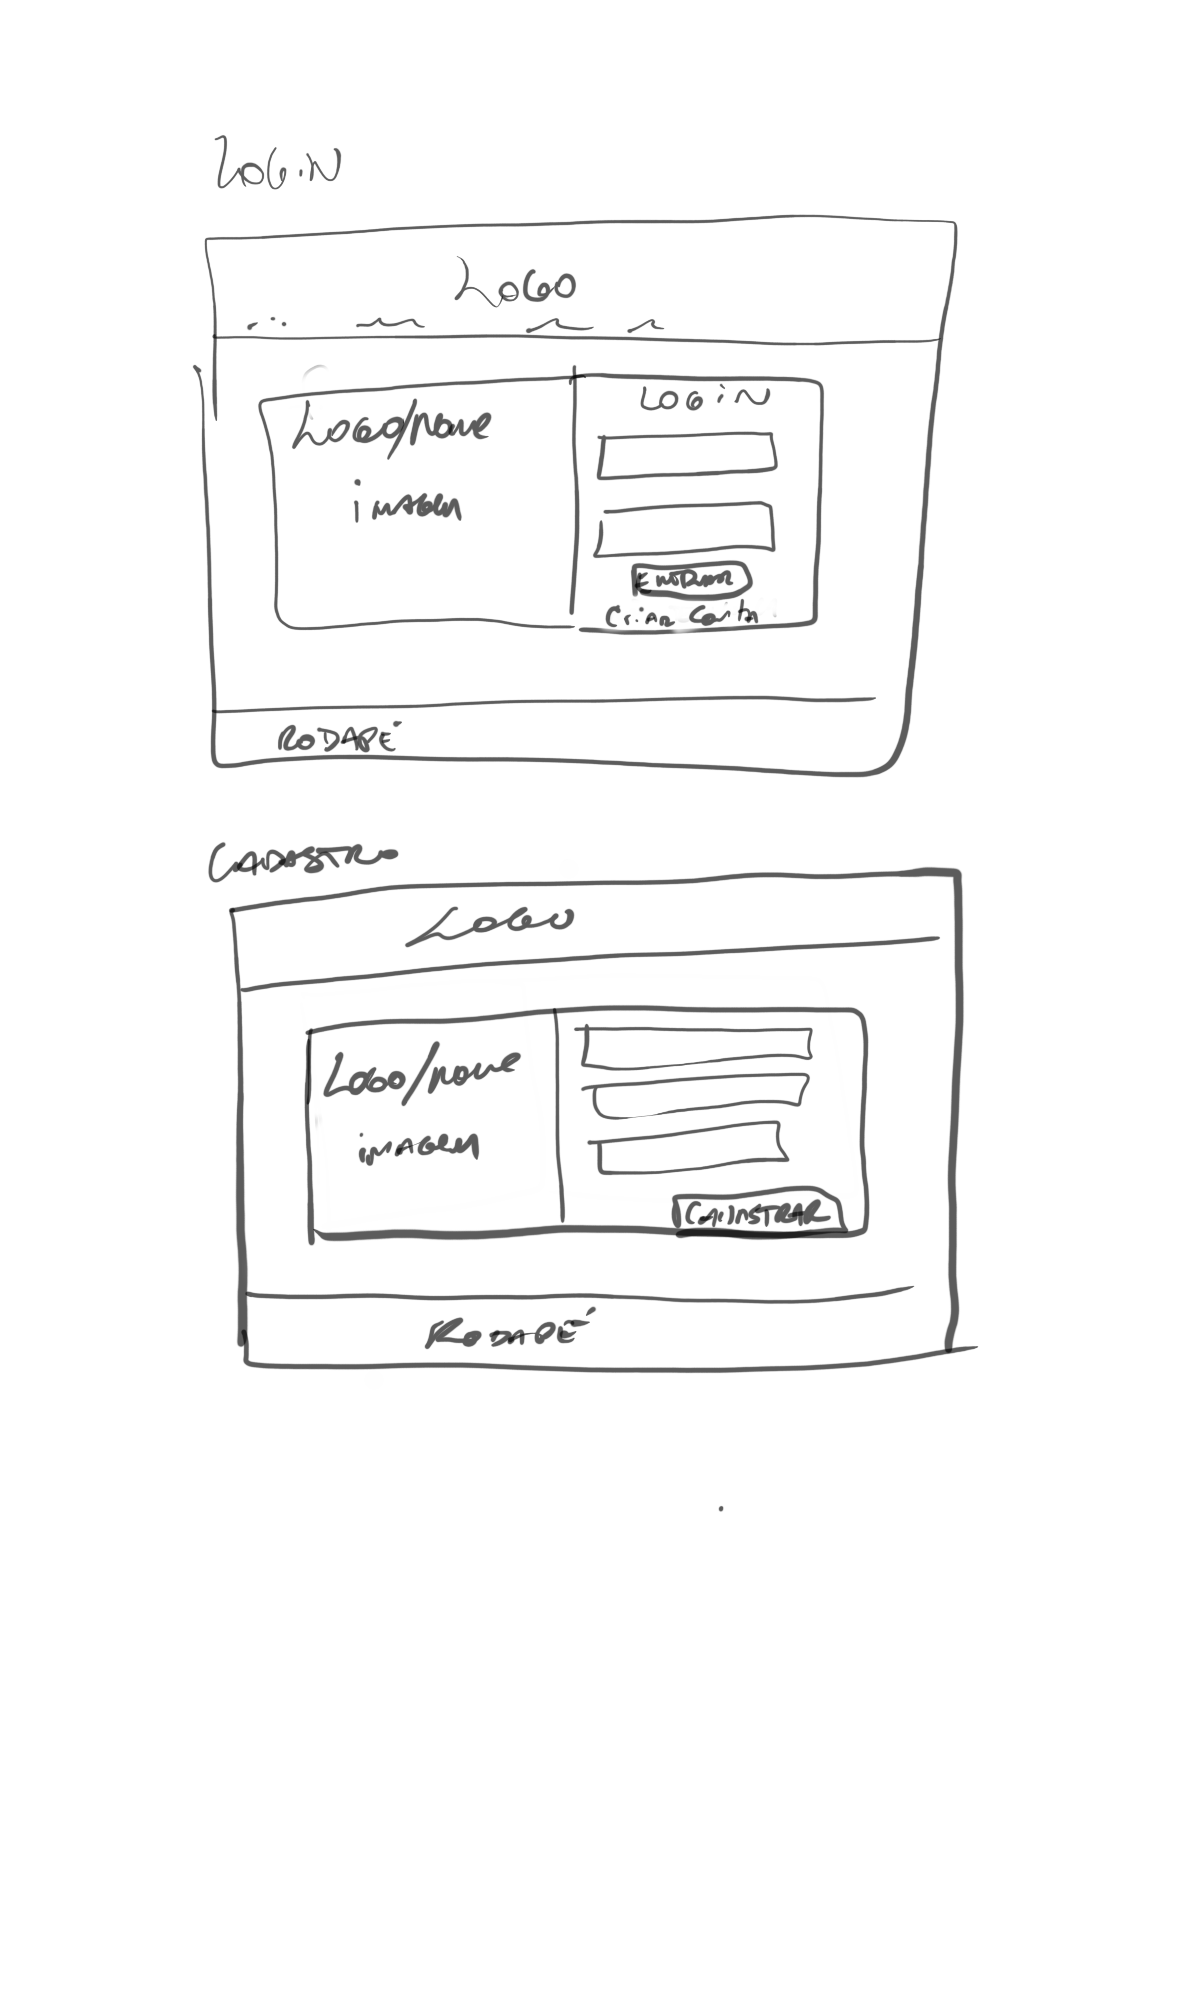 LOGIN
LOGO
Logo/nome
imagem
LOGIN
ENTRAR
Criar Conta
RODAPÉ
CADASTRO
LOGO
Logo/nome
imagem
CADASTRAR
RODAPÉ